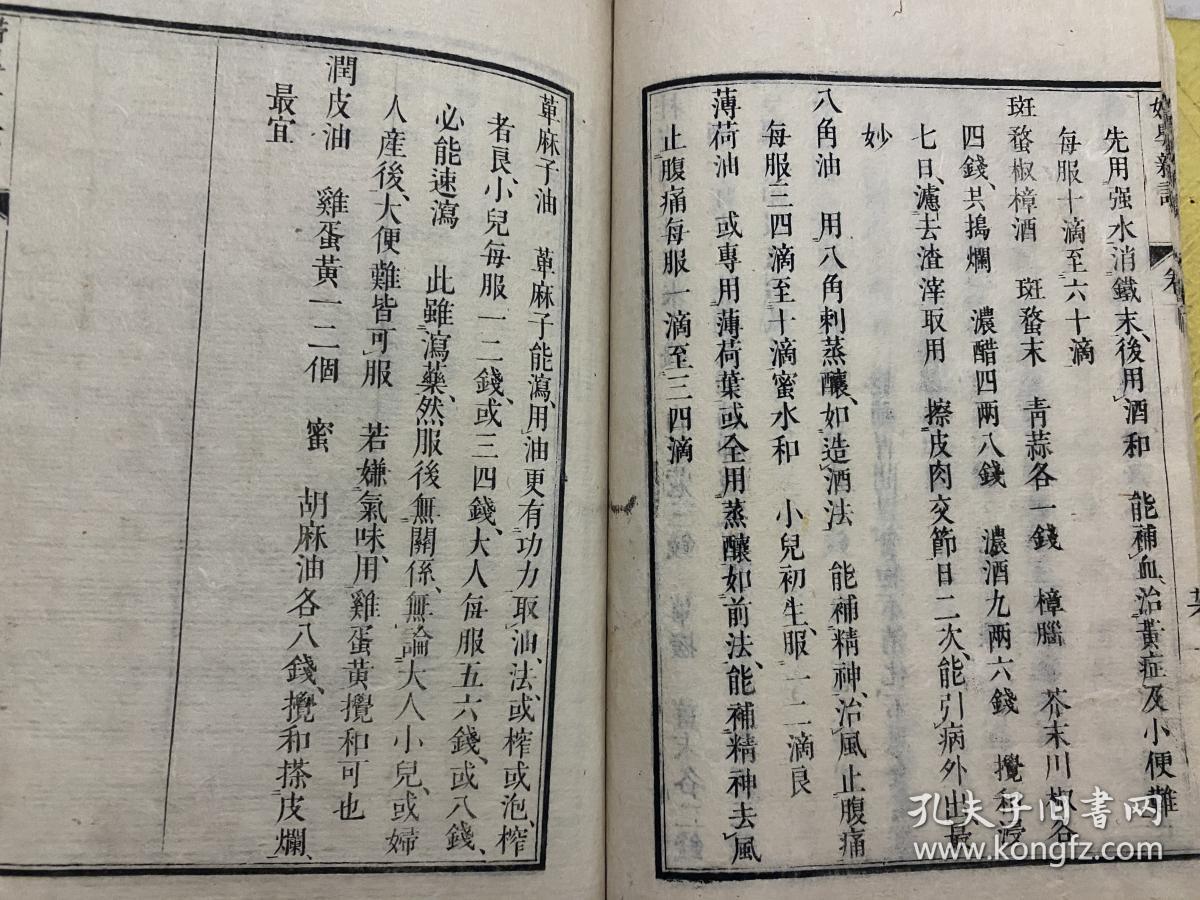 婦嬰新說
先用强水消鐵末、後用酒和 能補血、治黃症及小便難
每服十滴至六十滴
斑蝥椒樟酒 斑蝥末 青蒜各一錢 樟腦 芥末川椒各
四錢、共搗爛 濃醋四兩八錢 濃酒九兩六錢 攪和浸
七日、濾去渣滓取用 擦皮肉交節日二次、能引病外出最
妙
八角油 用八角刺蒸釀、如造酒法 能補精神、治風止腹痛
每服三四滴至十滴蜜水和 小兒初生、服一二滴良
薄荷油 或專用薄荷葉或全用蒸釀如前法、能補精神去風
止腹痛每服一滴至三四滴
蓖麻子油 蓖麻子能瀉、用油更有功力取油、法、或榨或泡、榨
者良、小兒每服一二錢、或三四錢、大人每服五六錢、或八錢、
必能速瀉 此雖瀉藥、然服後無關係、無論大人小兒、或婦
人産後、大便難皆可服 若嫌氣味、用雞蛋黃攪和可也
潤皮油 雞蛋黃一二個 蜜 胡麻油各八錢、攪和搽皮爛、
最宜
孔夫子旧書网
www.kongfz.com